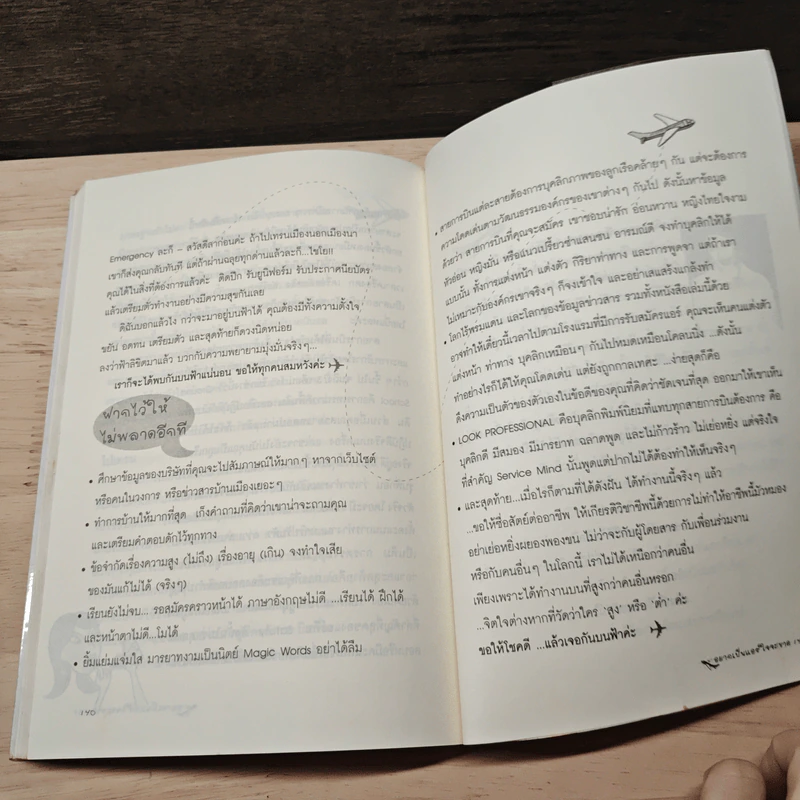 Emergency ละก็ – สวัสดีลาก่อนค่ะ ถ้าไปเทรนเมืองนอกเมืองนา
เขาก็ส่งคุณกลับทันที แต่ถ้าผ่านฉลุยทุกด่านแล้วละก็...ไชโย!!
คุณได้ในสิ่งที่ต้องการแล้วค่ะ ติดปีก รับยูนิฟอร์ม รับประกาศนียบัตร
แล้วเตรียมตัวทำงานอย่างมีความสุขกันเลย
ดิฉันบอกแล้วไง กว่าจะมาอยู่บนฟ้าได้ คุณต้องมีทั้งความตั้งใจ
ขยัน อดทน เตรียมตัว และสุดท้ายก็ดวงนิดหน่อย
ลงว่าฟ้าลิขิตมาแล้ว บวกกับความพยายามมุ่งมั่นจริงๆ...
เราก็จะได้พบกันบนฟ้าแน่นอน ขอให้ทุกคนสมหวังค่ะ
ฝากไว้ให้
ไม่พลาดอีกที
• ศึกษาข้อมูลของบริษัทที่คุณจะไปสัมภาษณ์ให้มากๆ หาจากเว็บไซต์
หรือคนในวงการ หรือข่าวสารบ้านเมืองเยอะๆ
• ทำการบ้านให้มากที่สุด เก็งคำถามที่คิดว่าเขาน่าจะถามคุณ
และเตรียมคำตอบดักไว้ทุกทาง
• ข้อจำกัดเรื่องความสูง (ไม่ถึง) เรื่องอายุ (เกิน) จงทำใจเสีย
ของมันแก้ไม่ได้ (จริงๆ)
• เรียนยังไม่จบ... รอสมัครคราวหน้าได้ ภาษาอังกฤษไม่ดี ...เรียนได้ ฝึกได้
และหน้าตาไม่ดี...โมได้
• ยิ้มแย้มแจ่มใส มารยาทงามเป็นนิตย์ Magic Words อย่าได้ลืม
196
• สายการบินแต่ละสายต้องการบุคลิกภาพของลูกเรือคล้ายๆ กัน แต่จะต้องการ
ความโดดเด่นตามวัฒนธรรมองค์กรของเขาต่างๆ กันไป ดังนั้นหาข้อมูล
ด้วยว่า สายการบินที่คุณจะสมัคร เขาชอบน่ารัก อ่อนหวาน หญิงไทยใจงาม
หัวอ่อน หญิงมั่น หรือแนวเปรี้ยวซ่าแสนซน อารมณ์ดี จงทำบุคลิกให้ได้
แบบนั้น ทั้งการแต่งหน้า แต่งตัว กิริยาท่าทาง และการพูดจา แต่ถ้าเรา
ไม่เหมาะกับองค์กรเขาจริงๆ ก็จงเข้าใจ และอย่าเสแสร้งแกล้งทำ
• โลกไร้พรมแดน และโลกของข้อมูลข่าวสาร รวมทั้งหนังสือเล่มนี้ด้วย
อาจทำให้เดี๋ยวนี้เวลาไปตามโรงแรมที่มีการรับสมัครแอร์ คุณจะเห็นคนแต่งตัว
แต่งหน้า ท่าทาง บุคลิกเหมือนๆ กันไปหมดเหมือนโคลนนิ่ง ...ดังนั้น
ทำอย่างไรก็ได้ให้คุณโดดเด่น แต่ยังถูกกาลเทศะ ...ง่ายสุดก็คือ
ดึงความเป็นตัวของตัวเองในข้อดีของคุณที่คิดว่าชัดเจนที่สุด ออกมาให้เขาเห็น
• LOOK PROFESSIONAL คือบุคลิกพิมพ์นิยมที่แทบทุกสายการบินต้องการ คือ
บุคลิกดี มีสมอง มีมารยาท ฉลาดพูด และไม่ก้าวร้าว ไม่เย่อหยิ่ง แต่จริงใจ
ที่สำคัญ Service Mind นั้นพูดแต่ปากไม่ได้ต้องทำให้เห็นจริงๆ
• และสุดท้าย...เมื่อไรก็ตามที่ได้ดังฝัน ได้ทำงานนี้จริงๆ แล้ว
...ขอให้ซื่อสัตย์ต่ออาชีพ ให้เกียรติวิชาชีพนี้ด้วยการไม่ทำให้อาชีพนี้มัวหมอง
อย่าเย่อหยิ่งผยองพองขน ไม่ว่าจะกับผู้โดยสาร กับเพื่อนร่วมงาน
หรือกับคนอื่นๆ ในโลกนี้ เราไม่ได้เหนือกว่าคนอื่น
เพียงเพราะได้ทำงานบนที่สูงกว่าคนอื่นหรอก
...จิตใจต่างหากที่วัดว่าใคร 'สูง' หรือ 'ต่ำ' ค่ะ
ขอให้โชคดี ...แล้วเจอกันบนฟ้าค่ะ
อยากเป็นแอร์ ใจจะขาด